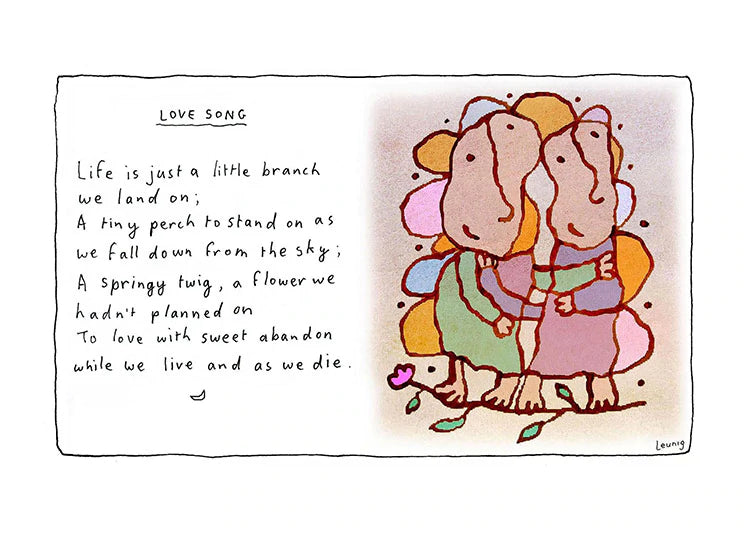 LOVE SONG
Life is just a little branch
we land on;
A tiny perch to stand on as
we fall down from the sky;
A springy twig, a flower we
hadn't planned on
To love with sweet abandon
while we live and as we die.
Leunig